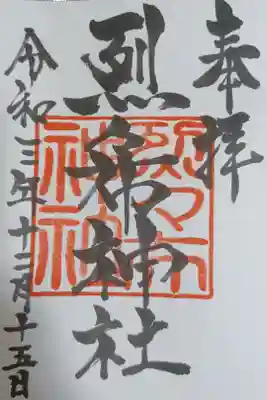 奉拝
烈々布神社
令和三年十二月十五日
烈々布
神社